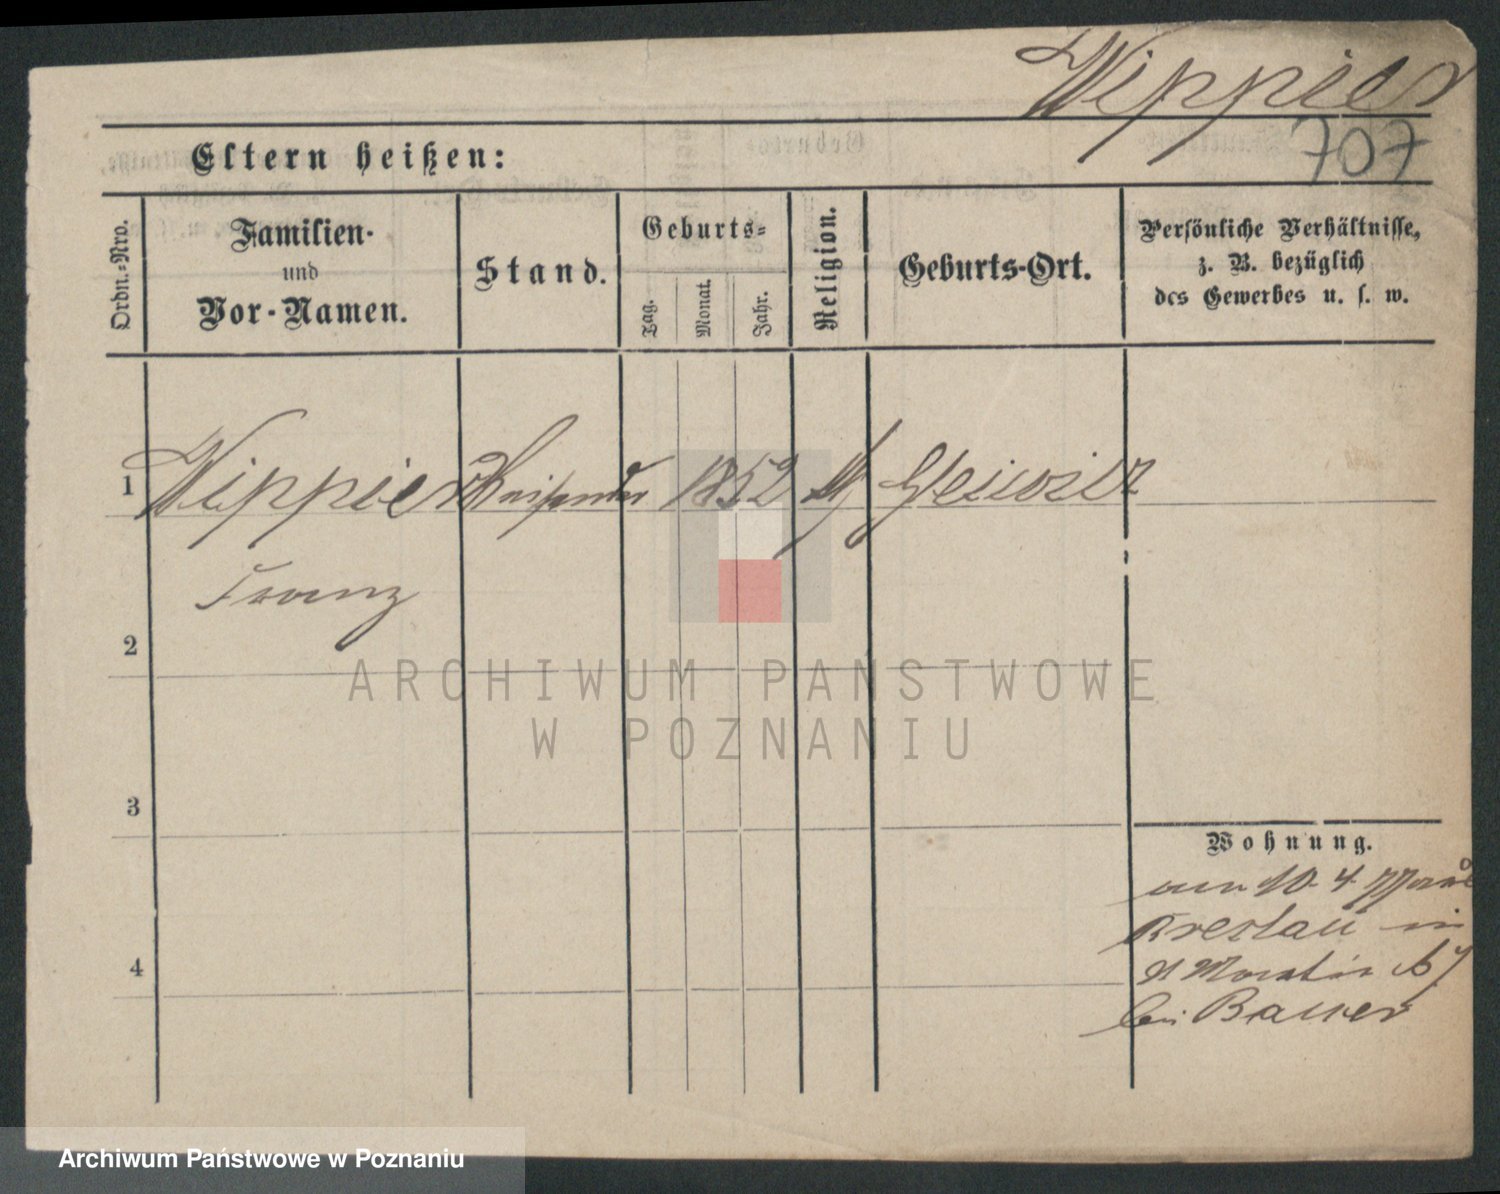 Wippier
707
Eltern heißen:
Ordn.-Nro.
Familien-
und
Vor-Namen.
Stand.
Geburts-
Tag.
Monat.
Jahr.
Religion.
Geburts-Ort.
Persönliche Verhältnisse,
z. B. bezüglich
des Gewerbes u. s. w.
1 Wippier Reisender 1852 Gleiwitz
Franz
2
3
4
Wohnung.
10. 4
Breslau in
St Martin 67
bei Bauer
ARCHIWUM PAŃSTWOWE
W POZNANIU
Archiwum Państwowe w Poznaniu